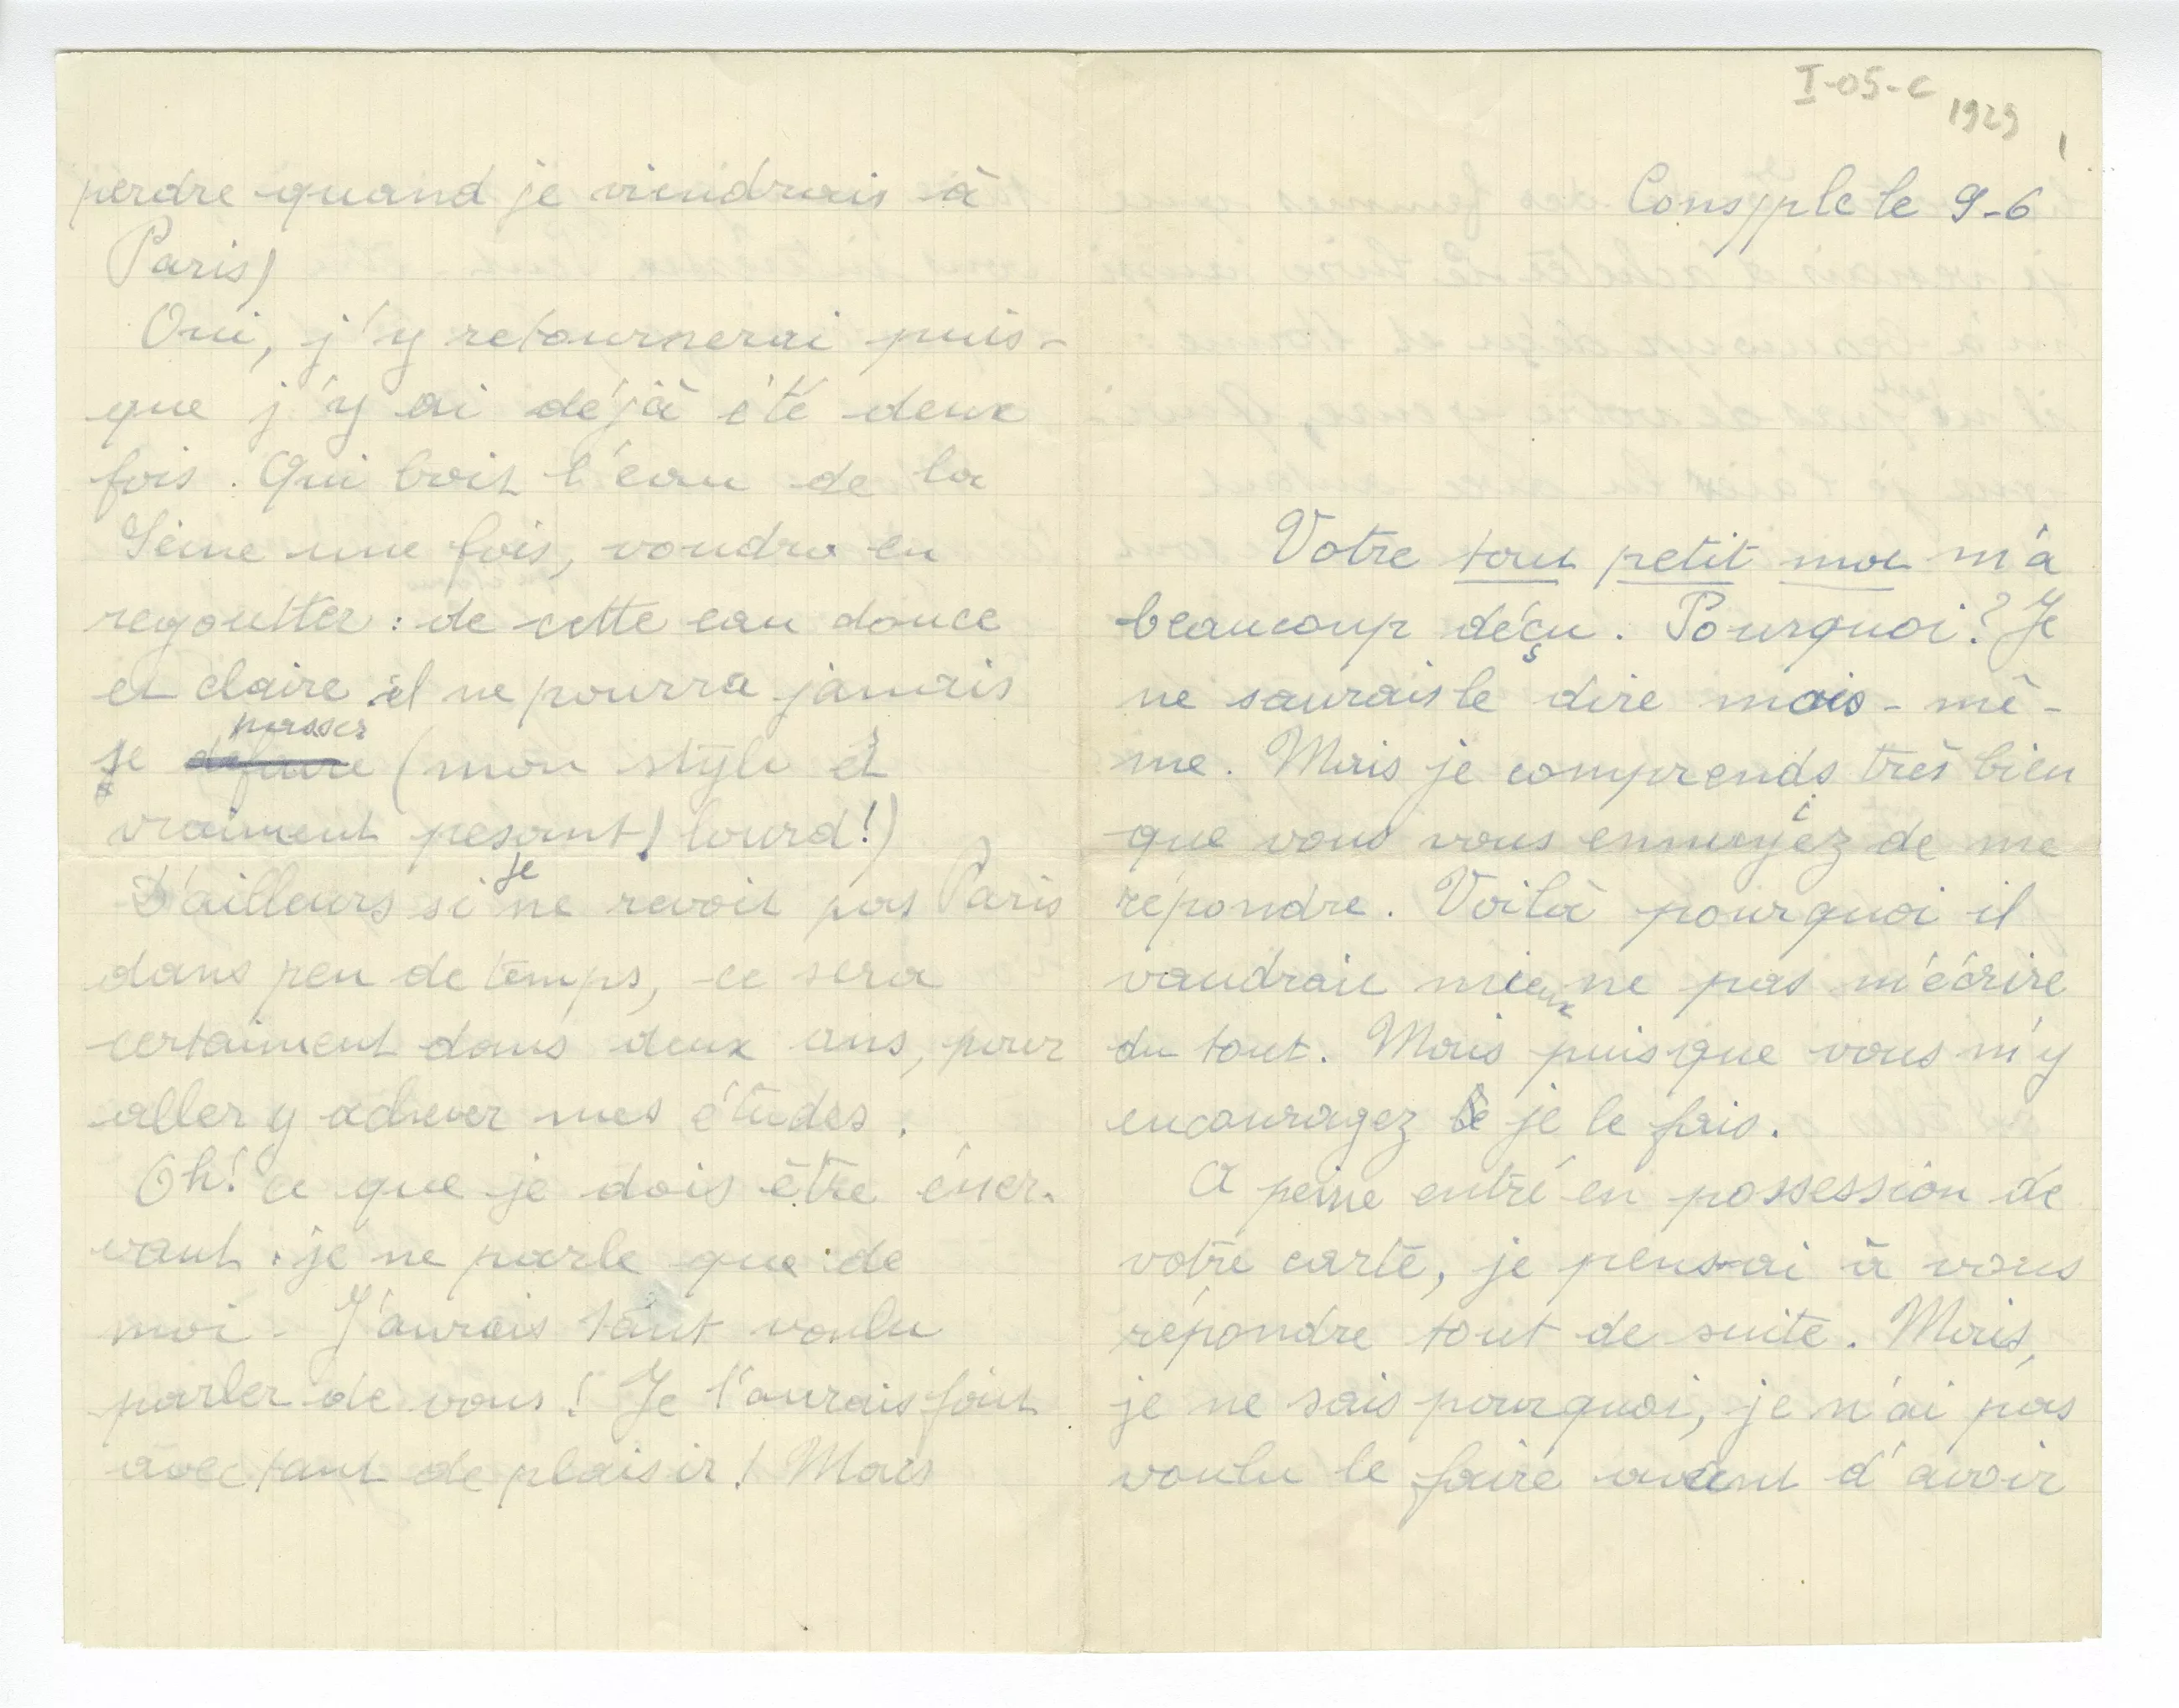 I-05-C 1929
1
Consple le 9-6
Votre tout petit mot m'a
beaucoup déçu. Pourquoi? Je
ne saurais le dire mois-mê-
me. Mais je comprends très bien
que vous vous ennuyiez de me
répondre. Voilà pourquoi il
vaudrait mieux ne pas m'écrire
du tout. Mais puisque vous m'y
encouragez je le fais.
A peine entré en possession de
votre carte, je pensai à vous
répondre tout de suite. Mais,
je ne sais pourquoi, je n'ai pas
voulu le faire avant d'avoir
perdre quand je viendrais à
Paris)
Oui, j'y retournerai puis-
que j'y ai déjà été deux
fois. Qui boit l'eau de la
Seine une fois, voudra en
regoutter : de cette eau douce
et claire il ne pourra jamais
passer
se defaire (mon style et
vraiment pesant, lourd!)
D'ailleurs si je ne revoit pas Paris
dans peu de temps, ce sera
certaiment dans deux ans, pour
aller y achever mes études.
Oh! ce que je dois être éner-
vant : je ne parle que de
moi - J'aurais tant voulu
parler de vous! Je l'aurais fait
avec tant de plaisir! Mais